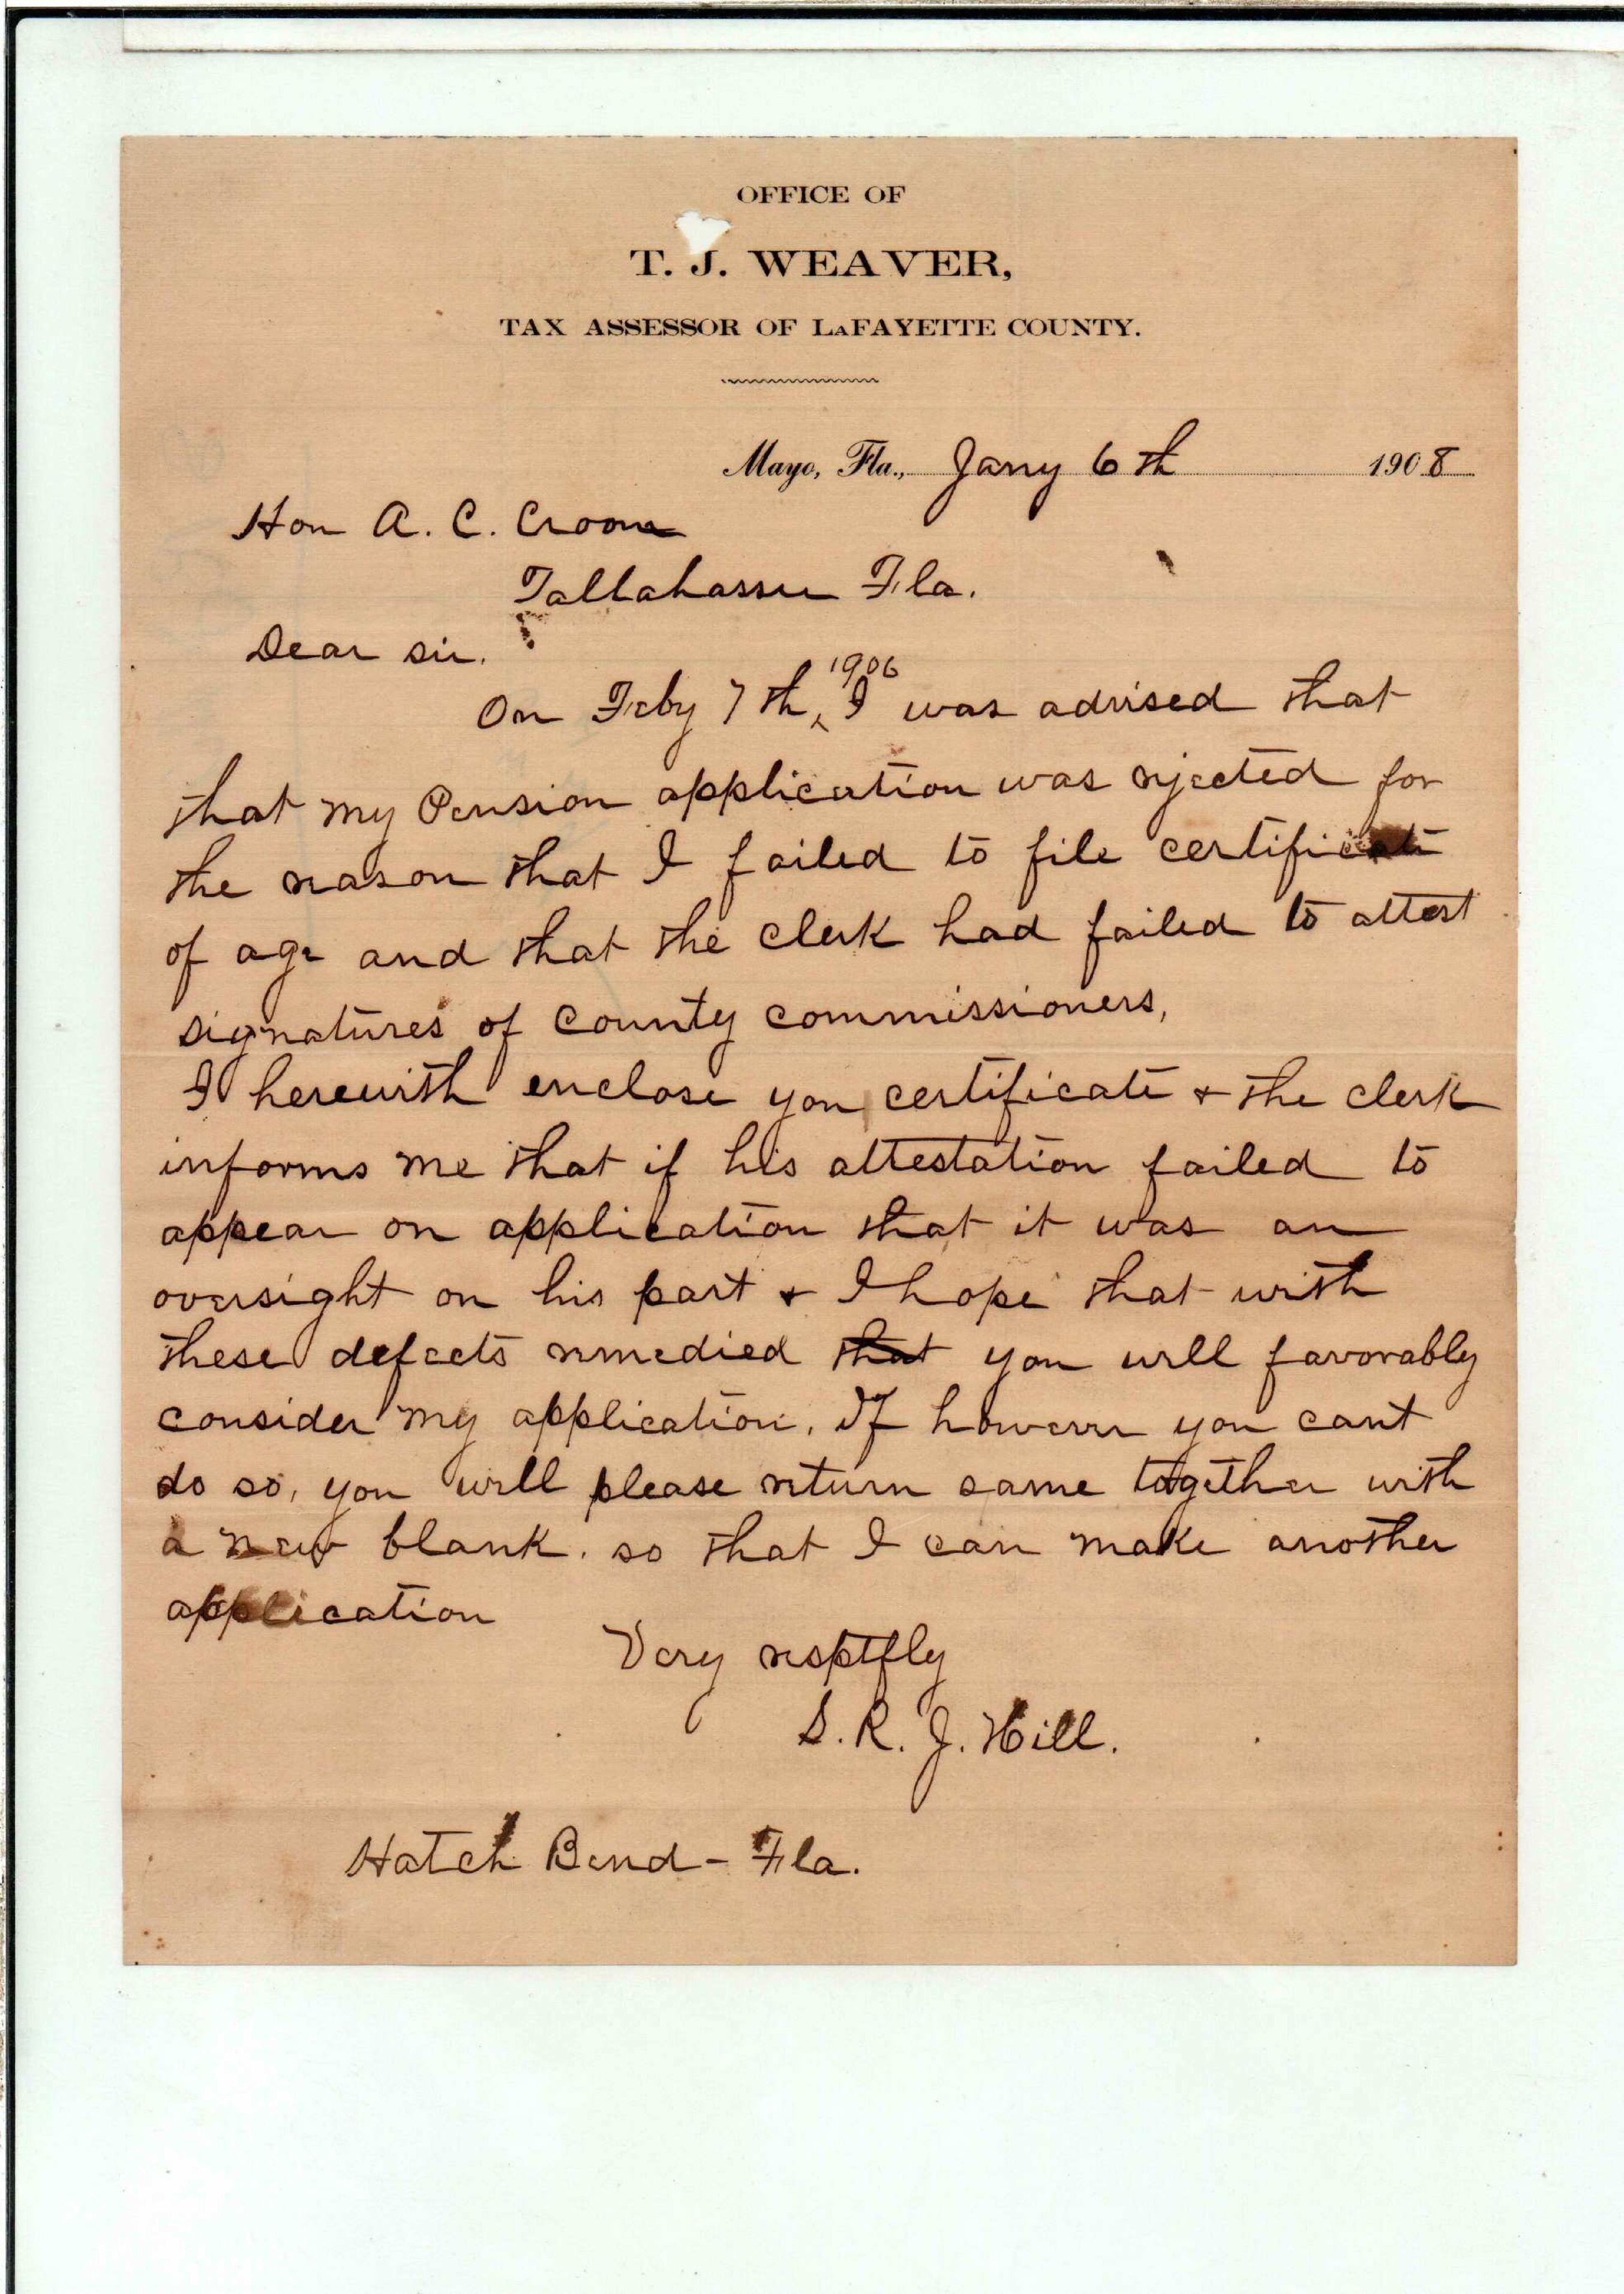 OFFICE OF
T. J. WEAVER,
TAX ASSESSOR OF LAFAYETTE COUNTY.
Mayo, Fla., Jany 6th 1908
Hon A. C. Croom
Tallahassee Fla.
Dear Sir.
On Feby 7th, 1906 I was advised that
that my Pension application was rejected for
the reason that I failed to file certificate
of age and that the clerk had failed to attest
signatures of county commissioners,
I herewith enclose you certificate & the clerk
informs me that if his attestation failed to
appear on application that it was an
oversight on his part & I hope that with
these defects remedied that you will favorably
consider my application. If however you cant
do so, you will please return same together with
a new blank. so that I can make another
application
Very resptfly
S. R. J. Hill.
Hatch Bend - Fla.